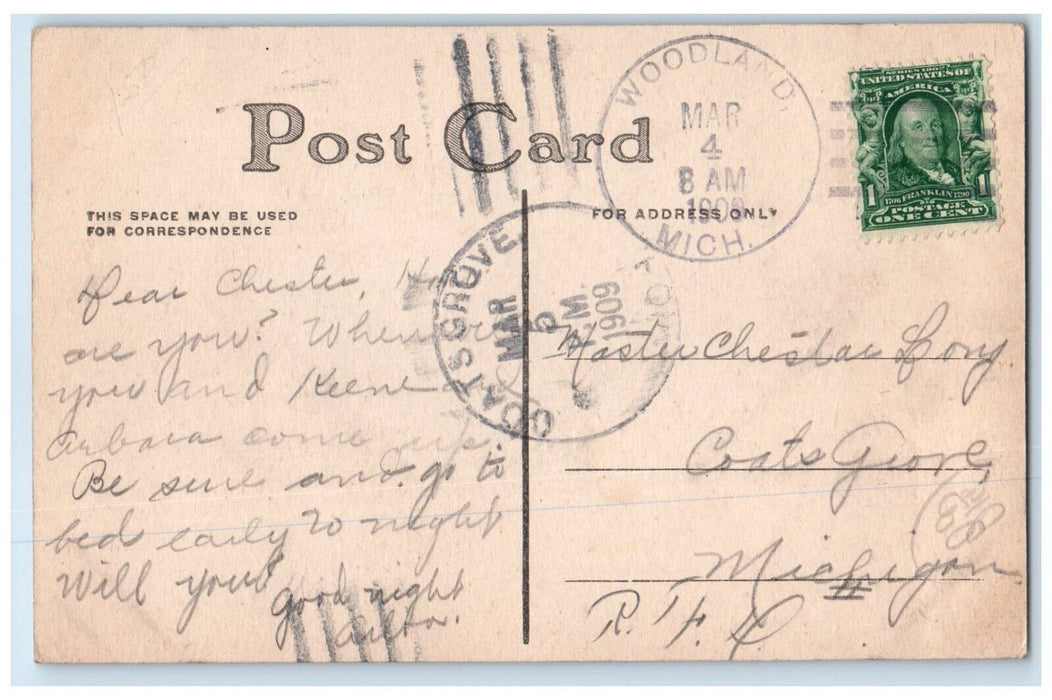 Post Card
THIS SPACE MAY BE USED
FOR CORRESPONDENCE
FOR ADDRESS ONLY
WOODLAND,
MAR
4
8 AM
MICH.
SERIES 1902
UNITED STATES OF
AMERICA
1 1
1706 FRANKLIN 1790
POSTAGE
ONE CENT
COATS GROVE
MAR
5
A.M.
1909
MICH
Dear Chester,
are you? When
you and Keene
come up.
Be sure and go to
bed early to night
will you?
good night
Master Chester Long
Coats Grove,
Michigan
R. F. D.